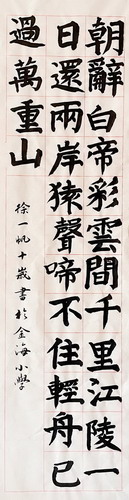 朝辭白帝彩雲間千里江陵一
日還兩岸猿聲啼不住輕舟已
過萬重山
徐一帆十歲書於金海小學